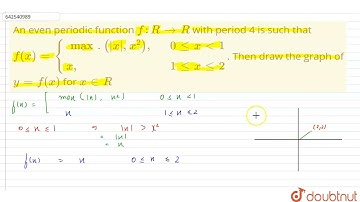 642540989
An even periodic function f : R → R with period 4 is such that
f(x) = { max . (|x|, x²), 0 ≤ x < 1
x, 1 ≤ x ≤ 2 . Then draw the graph of
y = f(x) for x ∈ R
f(x) = [ max (|x|, x²) 0 ≤ x < 1
x 1 ≤ x ≤ 2
0 ≤ x ≤ 1 ⇒ |x| > x²
= |x|
= x
f(x) = x 0 ≤ x ≤ 2
(2,2)
doubtnut